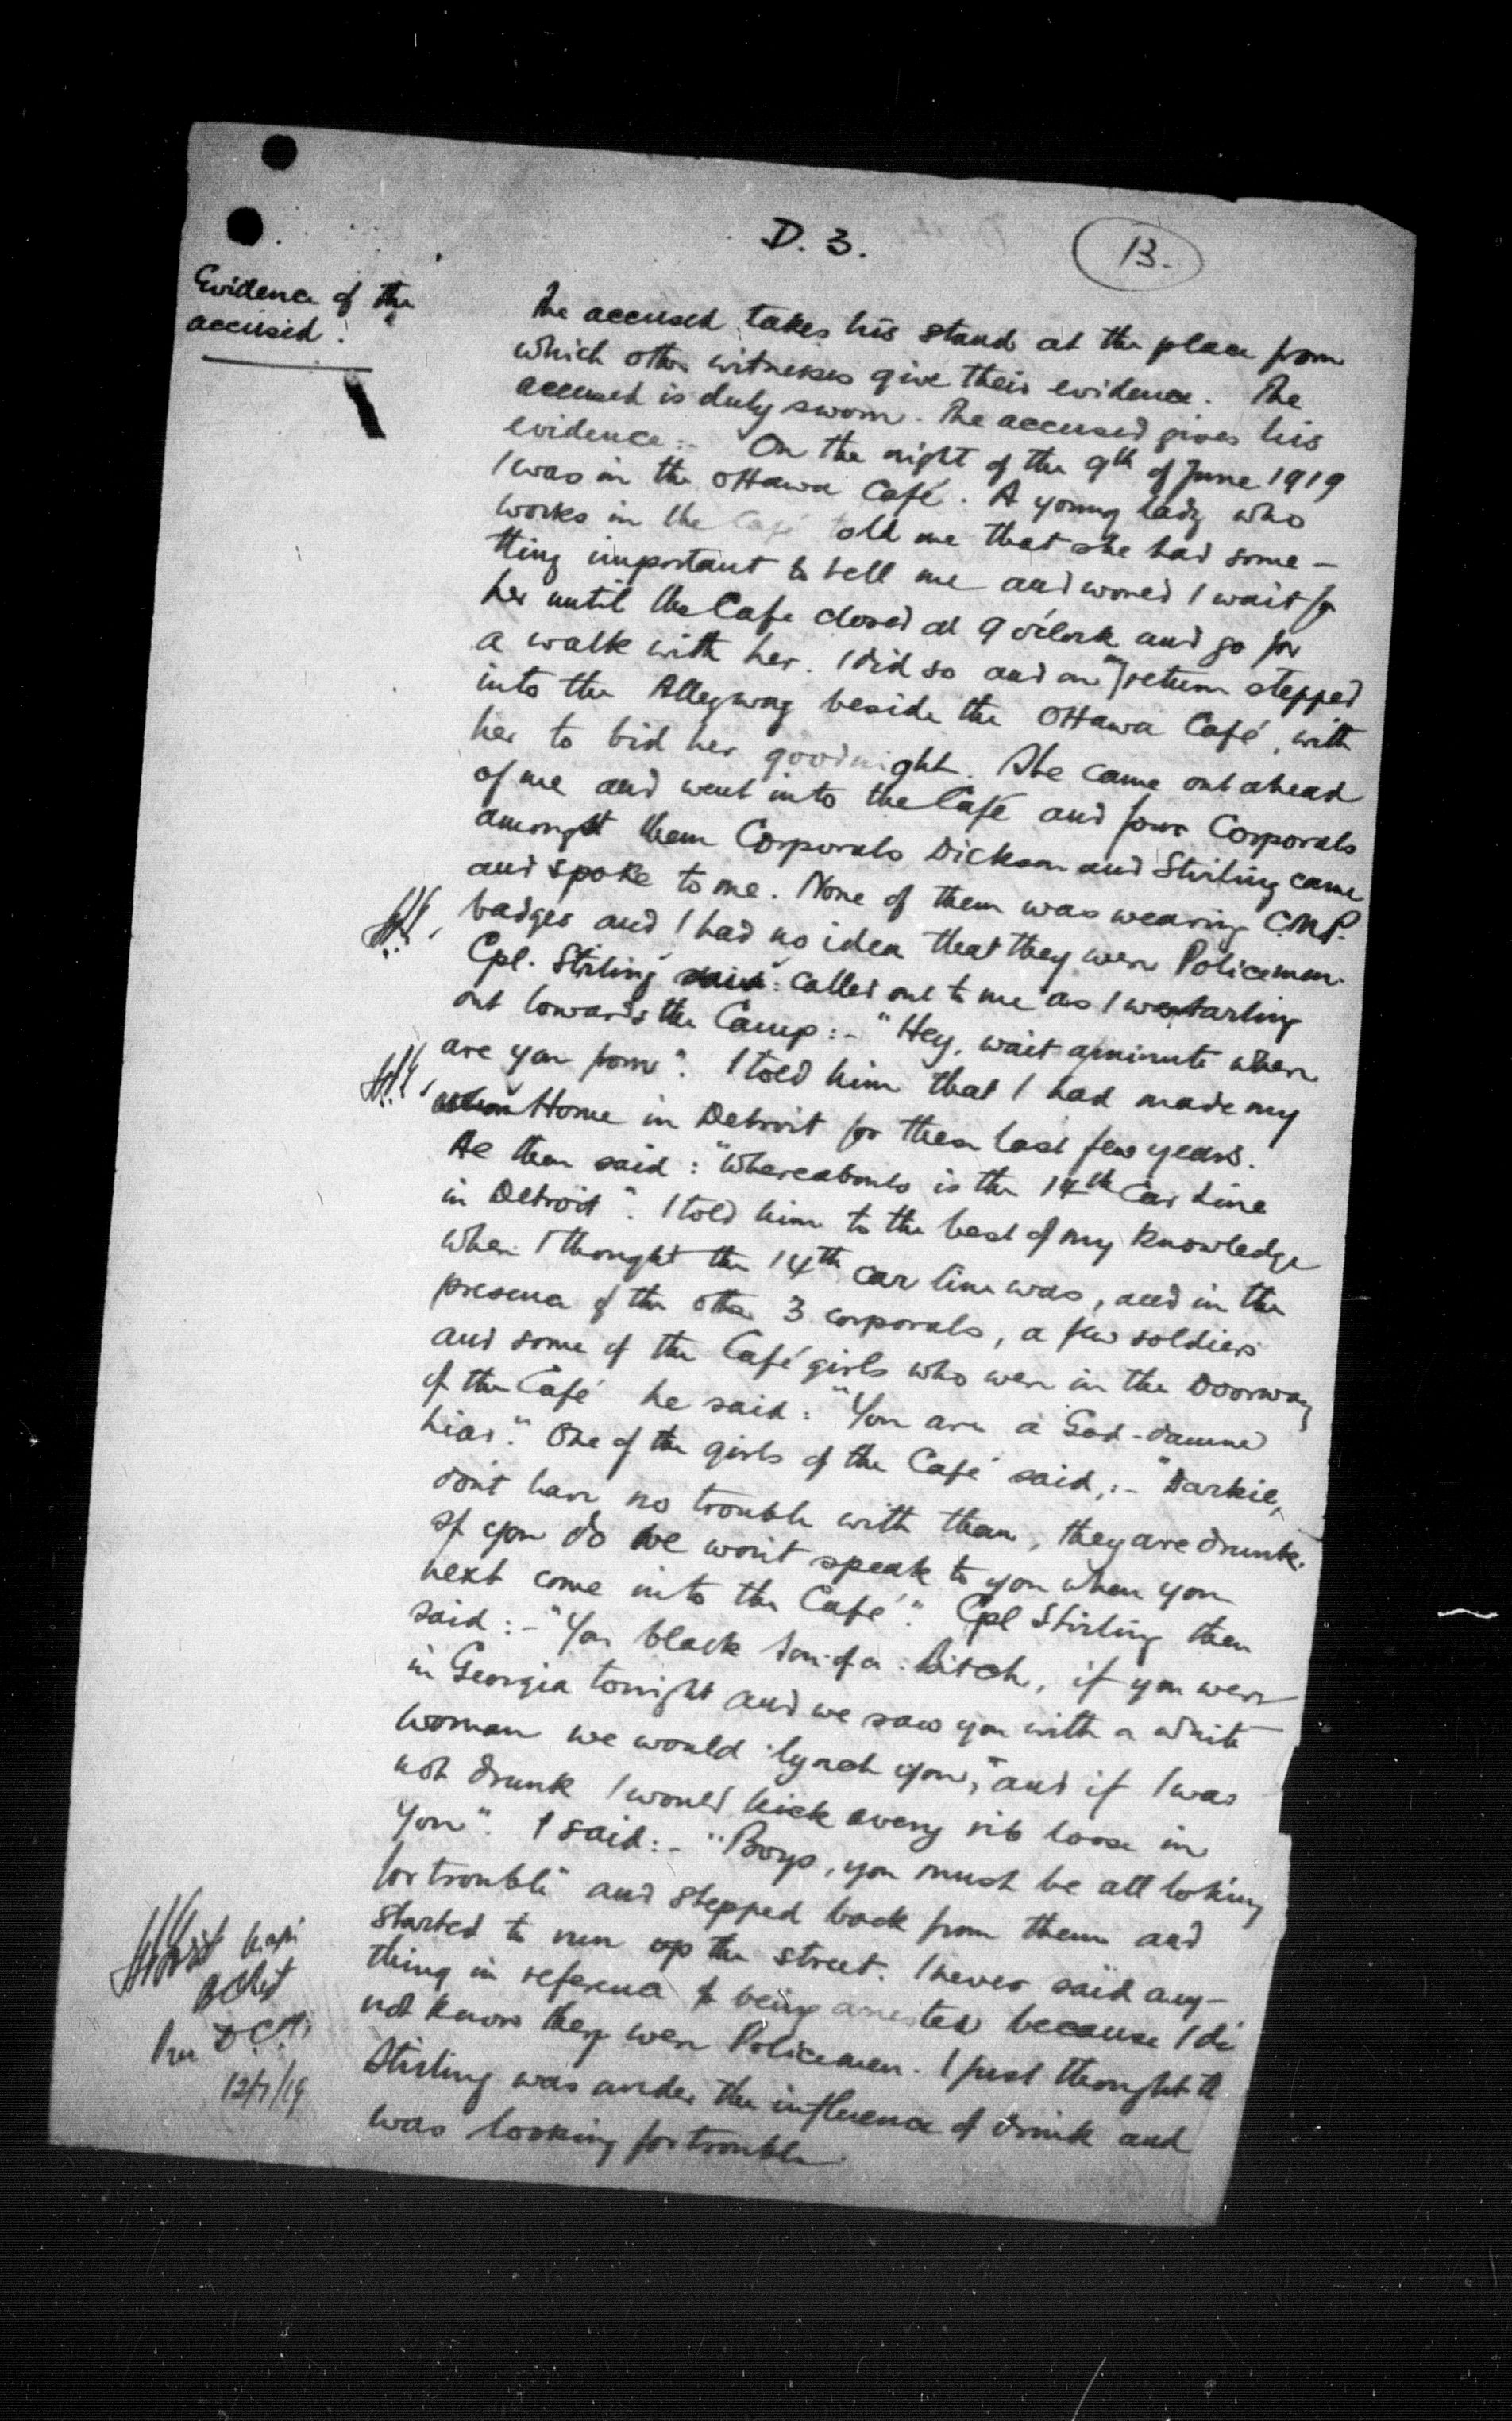 D. 3.
13.
Evidence of the
accused.
The accused takes his stand at the place from
which other witnesses give their evidence. The
accused is duly sworn. The accused gives his
evidence:- On the night of the 9th of June 1919
I was in the Ottawa Café. A young lady who
works in the Café told me that she had some-
thing important to tell me and would I wait for
her until the Cafe closed at 9 o'clock and go for
a walk with her. I did so and on my return stepped
into the Alleyway beside the Ottawa Café, with
her to bid her goodnight. She came out ahead
of me and went into the Café and four Corporals
amongst them Corporals Dickson and Stirling came
and spoke to me. None of them was wearing C.M.P.
badges and I had no idea that they were Policemen.
Cpl. Stirling said: called out to me as I was starting
out towards the Camp:- "Hey, wait a minute where
are you from". I told him that I had made my
Home in Detroit for these last few years.
He then said: "Whereabouts is the 14th Car Line
in Detroit". I told him to the best of my knowledge
where I thought the 14th car line was, and in the
presence of the other 3 corporals, a few soldiers
and some of the Café girls who were in the Doorway
of the Café he said: "You are a God-damned
liar." One of the girls of the Café said,:- "Darkie,
don't have no trouble with them, they are drunk.
If you do we won't speak to you when you
next come into the Café." Cpl Stirling then
said:- "You black Son-of-a-Bitch, if you were
in Georgia tonight and we saw you with a white
woman we would lynch you," and if I was
not drunk I would kick every rib loose in
you". I said:- "Boys, you must be all looking
for trouble" and stepped back from them and
started to run up the street. I never said any-
thing in reference to being arrested because I di
not know they were Policemen. I just thought th
Stirling was under the influence of drink and
was looking for trouble
12/7/19